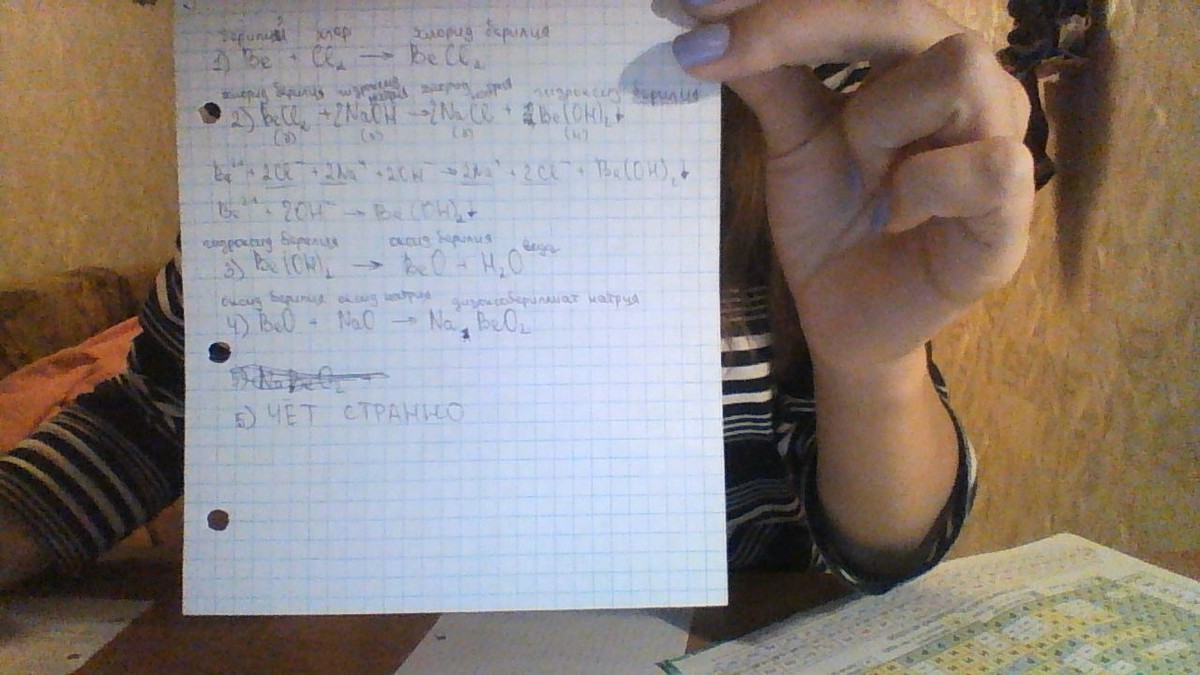 бериллий хлор хлорид берилия
1) Be + Cl₂ → BeCl₂
хлорид берилия гидроксид натрия хлорид натрия гидроксид берилия
2) BeCl₂ + 2NaOH → 2NaCl + Be(OH)₂↓
(р) (р) (р) (н)
Be²⁺ + 2Cl⁻ + 2Na⁺ + 2OH⁻ → 2Na⁺ + 2Cl⁻ + Be(OH)₂↓
Be²⁺ + 2OH⁻ → Be(OH)₂↓
гидроксид берилия оксид берилия вода
3) Be(OH)₂ → BeO + H₂O
оксид берилия оксид натрия диоксобериллиат натрия
4) BeO + NaO → Na BeO₂
5) ЧЕТ СТРАННО